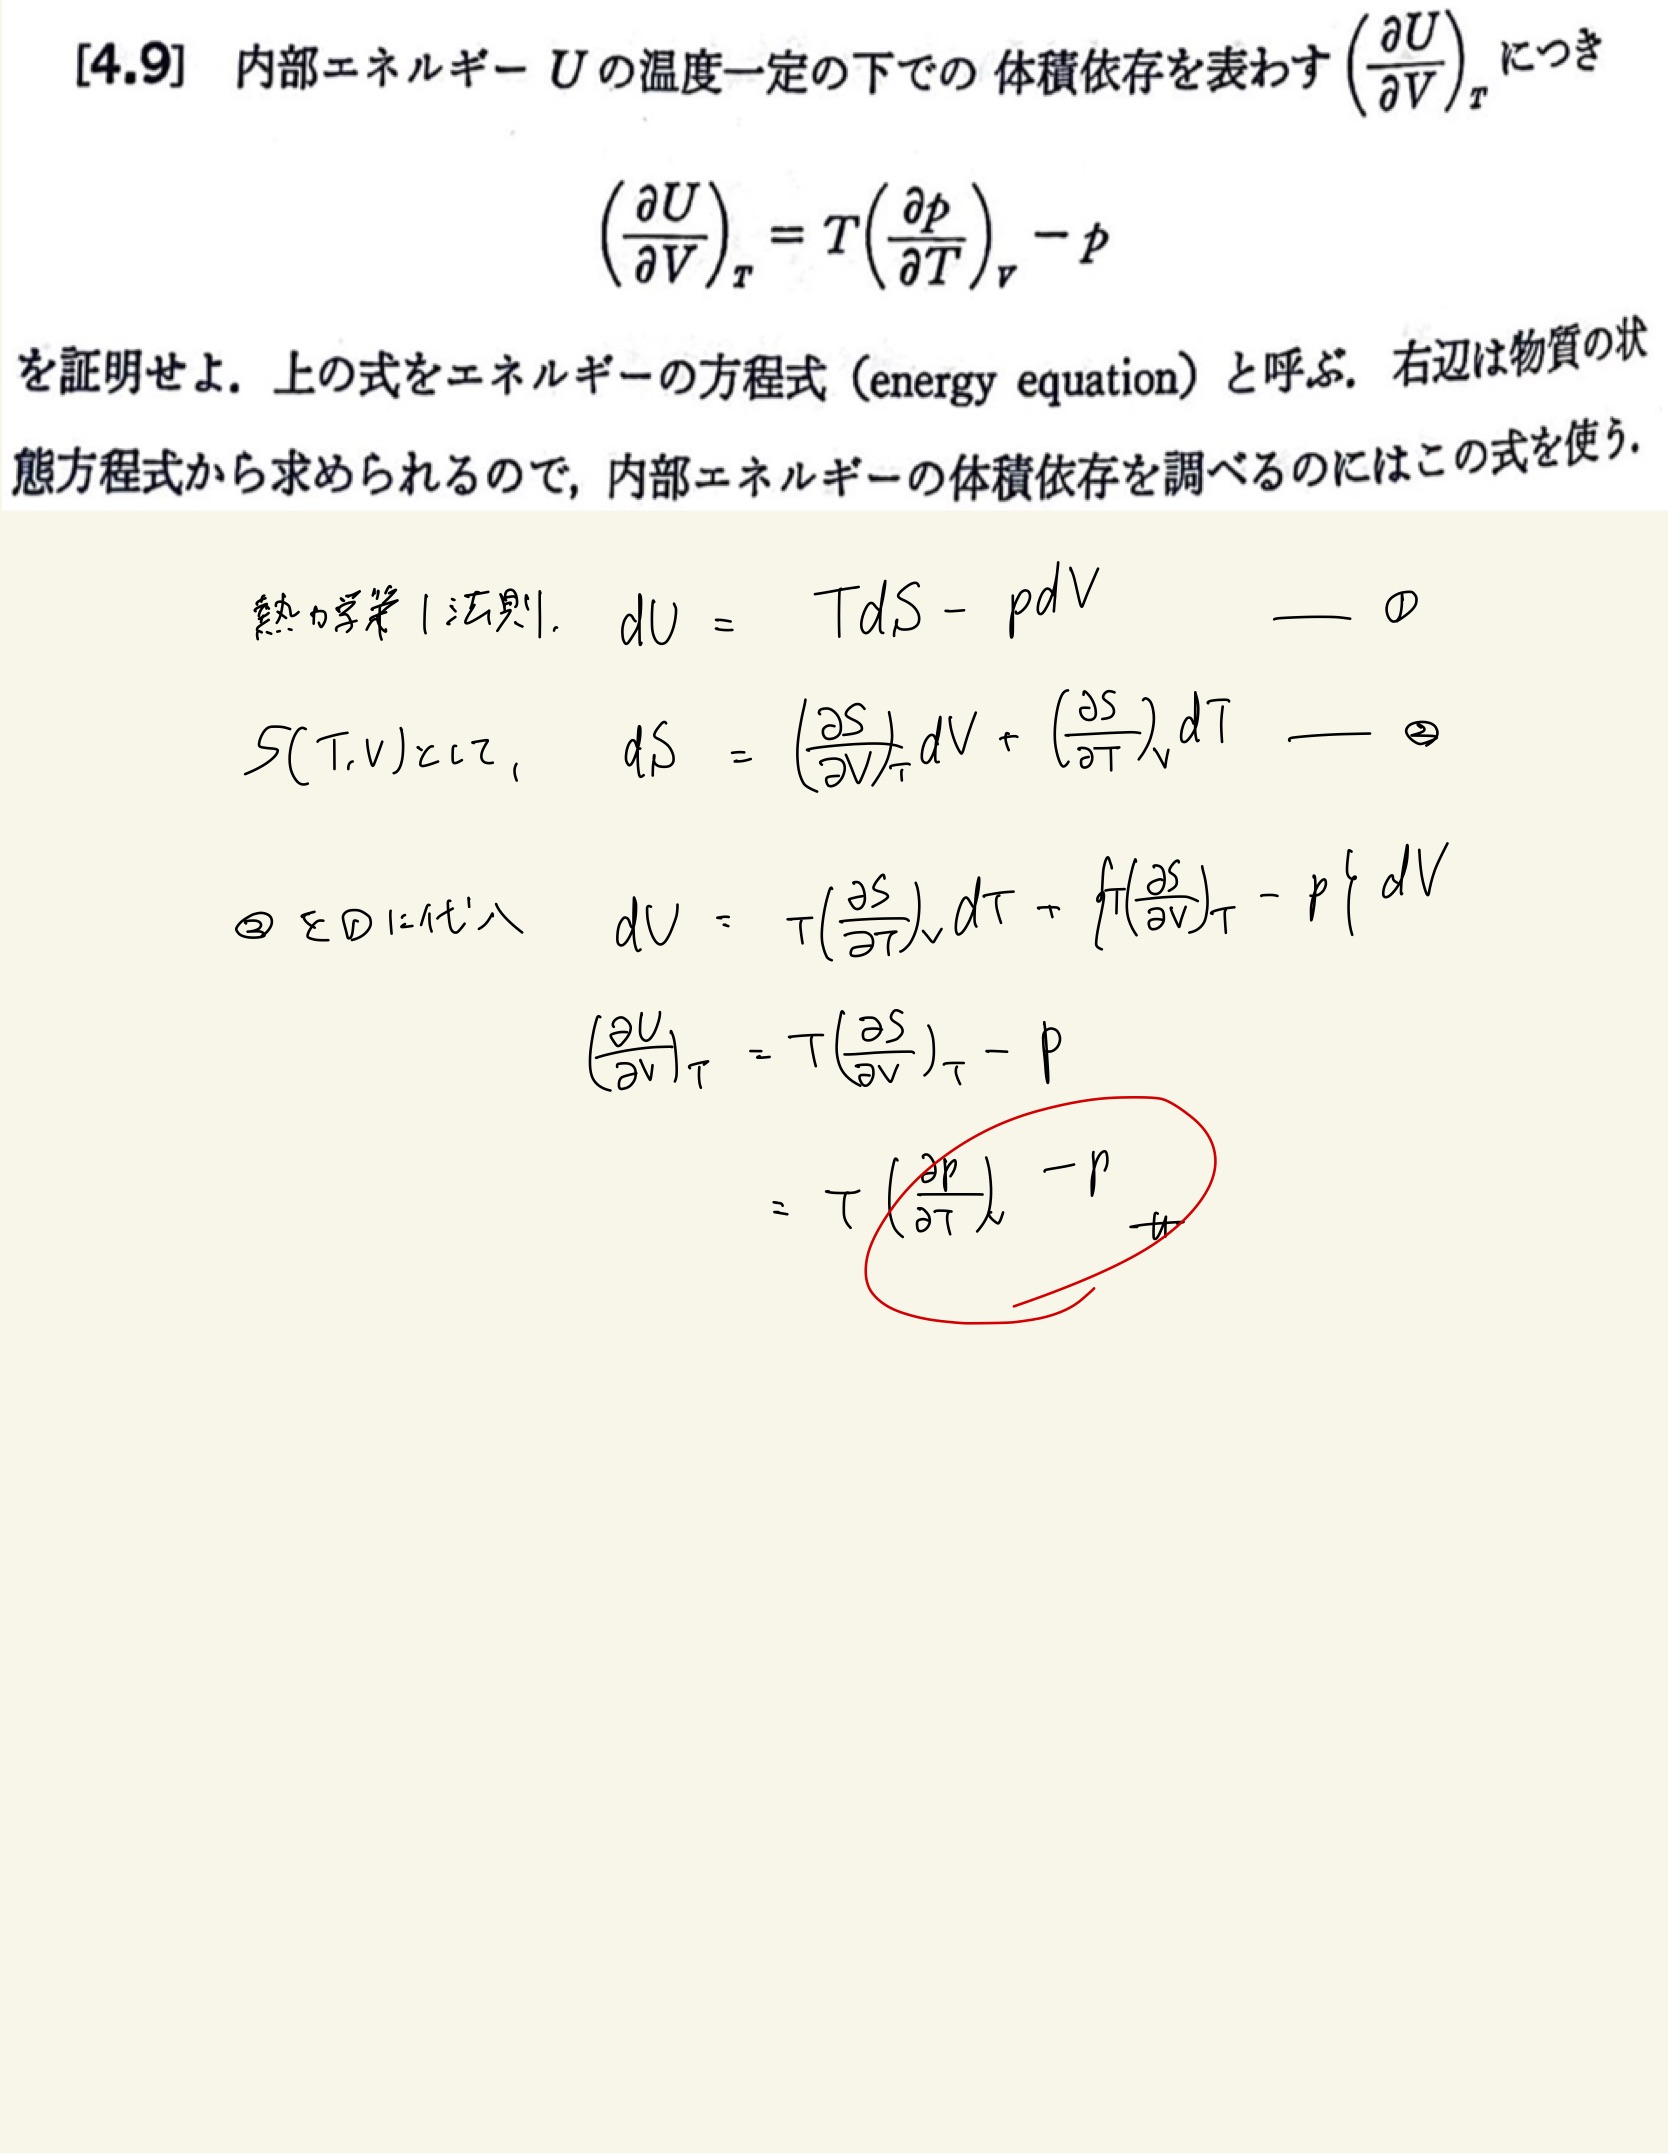 [4.9] 内部エネルギー U の温度一定の下での 体積依存を表わす (∂U/∂V)_T につき
(∂U/∂V)_T = T(∂p/∂T)_V − p
を証明せよ. 上の式をエネルギーの方程式 (energy equation) と呼ぶ. 右辺は物質の状
態方程式から求められるので, 内部エネルギーの体積依存を調べるのにはこの式を使う.
熱力学第1法則. dU = TdS − pdV — ①
S(T,V)として, dS = (∂S/∂V)_T dV + (∂S/∂T)_V dT — ②
②を①に代入 dU = T(∂S/∂T)_V dT + {T(∂S/∂V)_T − p} dV
(∂U/∂V)_T = T(∂S/∂V)_T − p
= T(∂p/∂T)_V − p